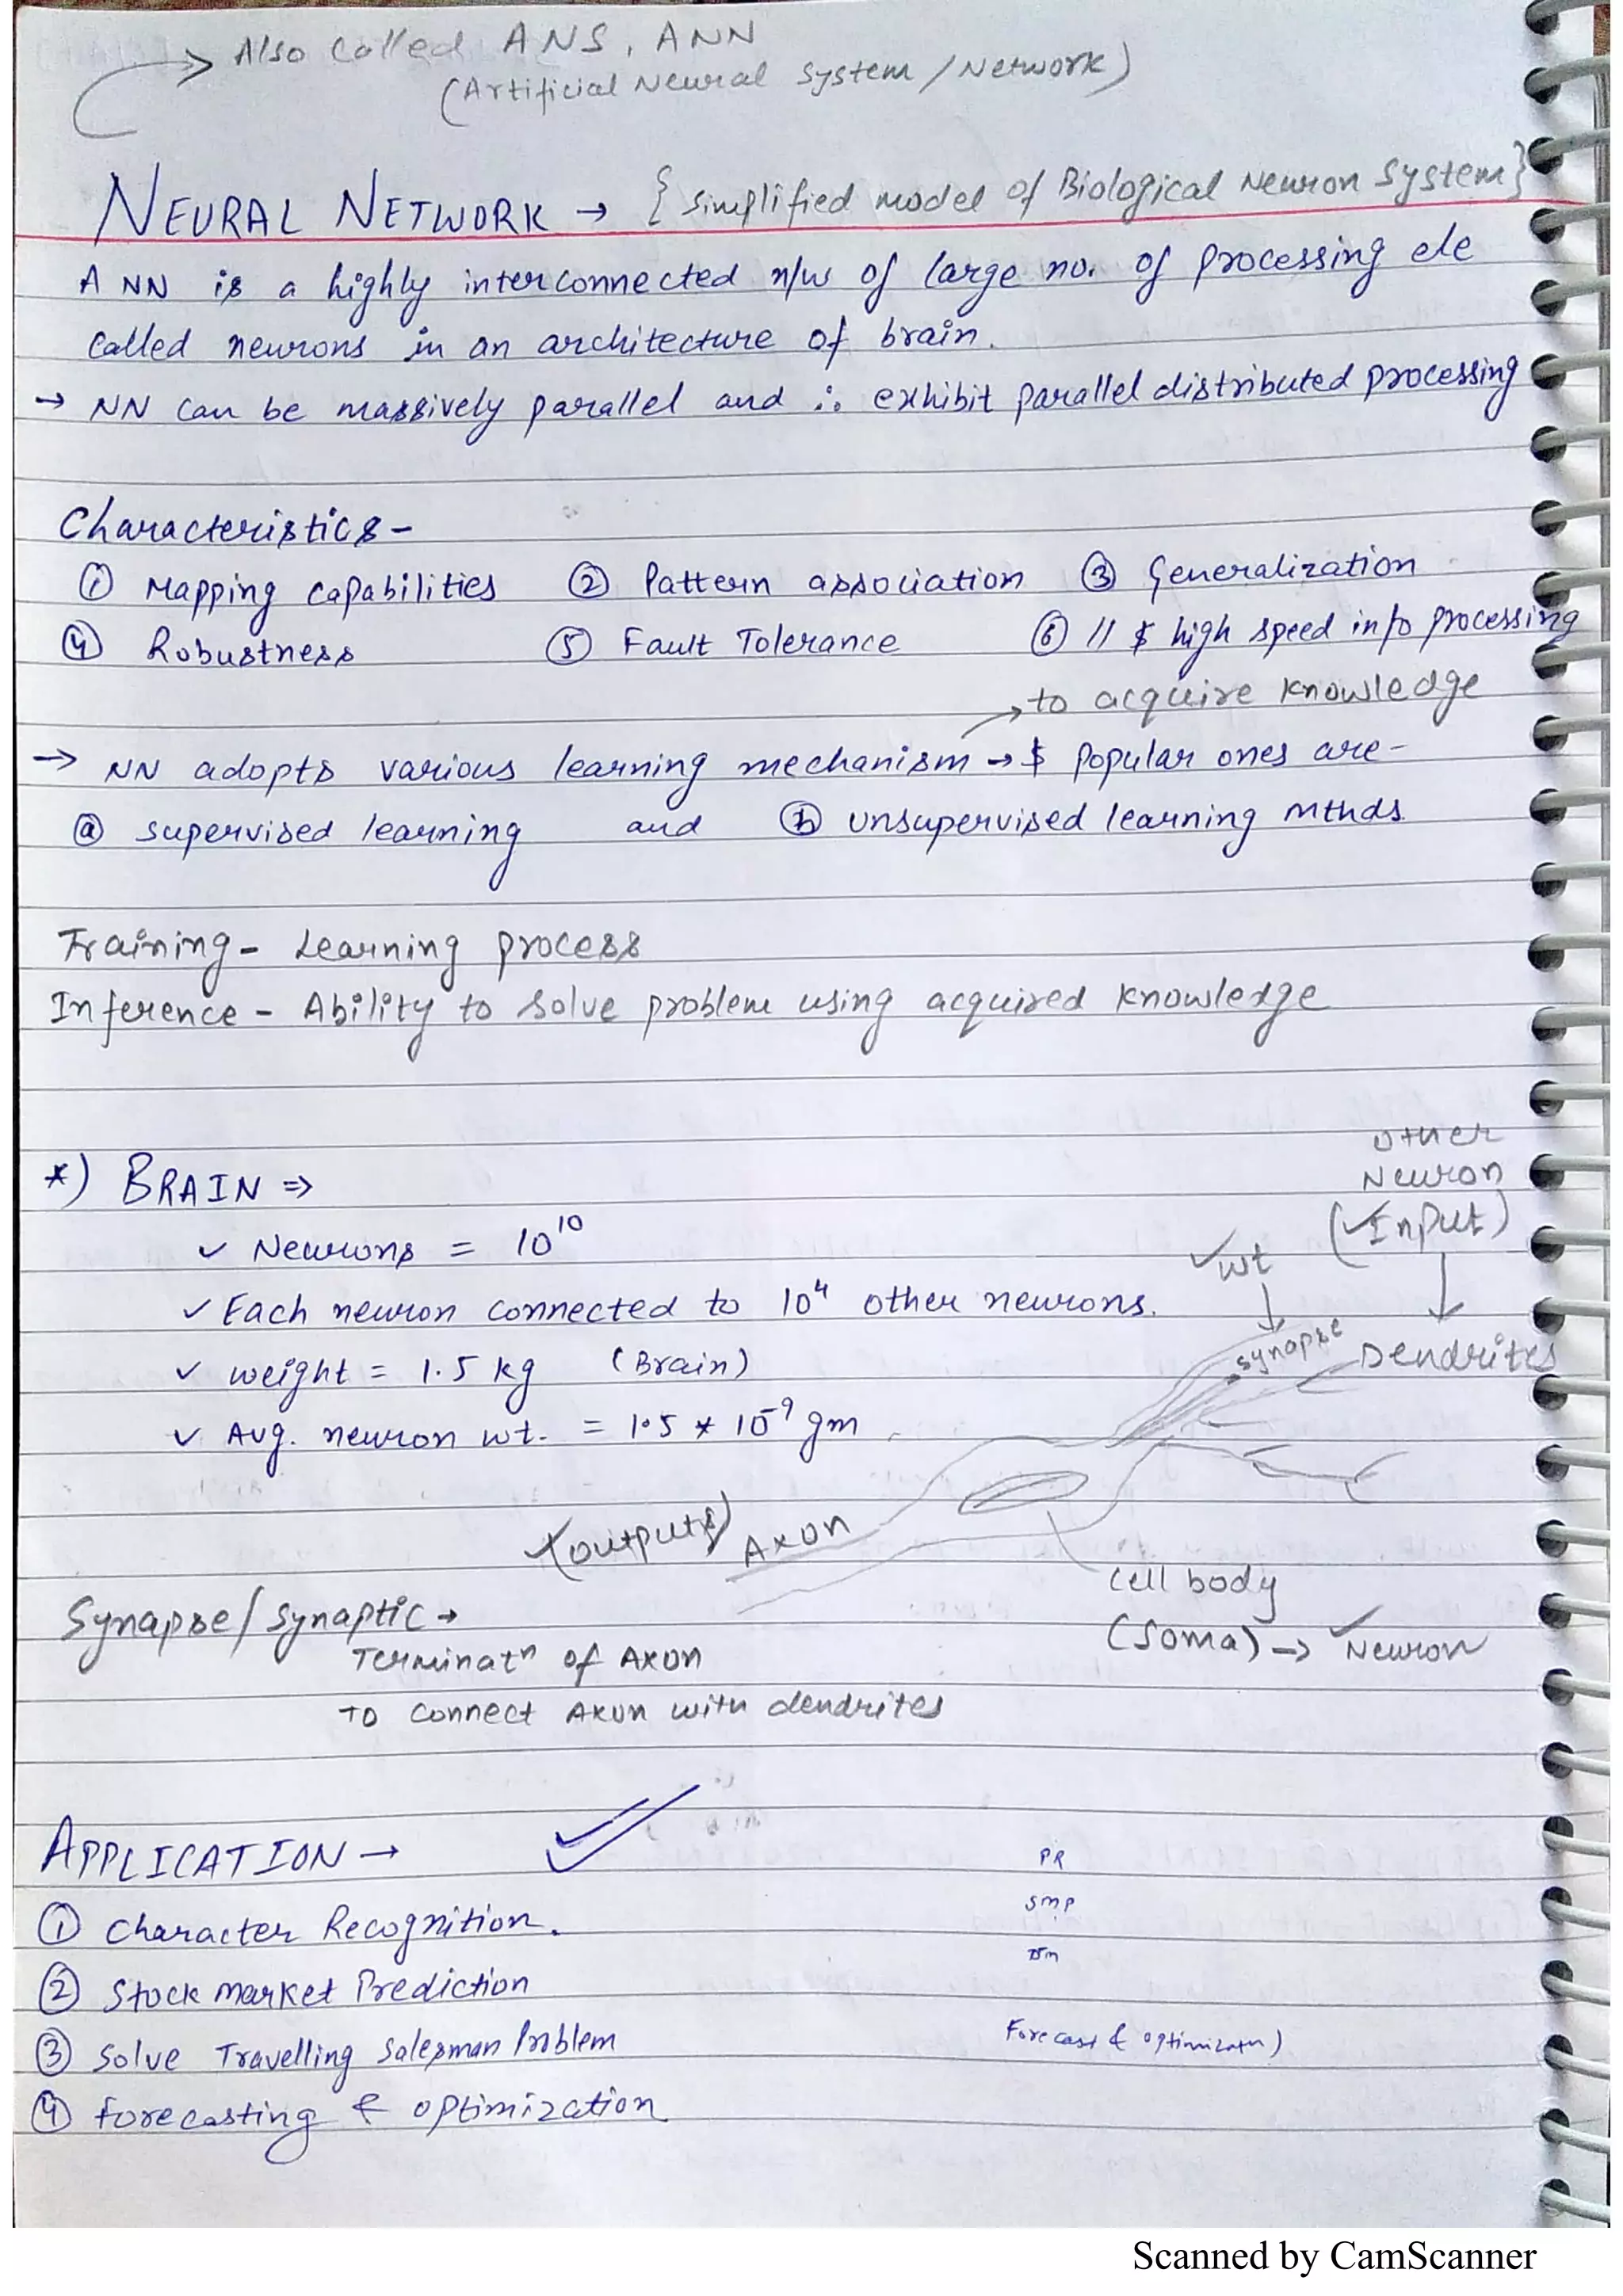 Also Called ANS, ANN
(Artificial Neural System / Network)
NEURAL NETWORK → { Simplified model of Biological Neuron System }
A NN is a highly interconnected n/w of large no. of processing ele
called neurons in an architecture of brain.
→ NN can be massively parallel and ∴ exhibit parallel distributed processing
Characteristics -
① Mapping capabilities ② Pattern association ③ Generalization
④ Robustness ⑤ Fault Tolerance ⑥ // & high speed info processing
→ to acquire knowledge
→ NN adopts various learning mechanism → & popular ones are -
ⓐ supervised learning and ⓑ unsupervised learning mthds.
Training - Learning process
Inference - Ability to solve problem using acquired knowledge
*) BRAIN ⇒
✓ Neurons = 10^10
✓ Each neuron connected to 10^4 other neurons.
✓ weight = 1.5 kg (Brain)
✓ Avg. neuron wt. = 1.5 * 10^-9 gm
other
Neuron
(✓Input)
✓wt
synapse
Dendrites
✓(outputs) Axon
cell body
(Soma) → ✓Neuron
Synapse/Synaptic →
Terminatn of Axon
To connect Axon with dendrites
APPLICATION →
PR
① Character Recognition.
smp
② Stock market Prediction
③ Solve Travelling Salesman Problem
Forecast & optimizatn)
④ forecasting & optimization
Scanned by CamScanner